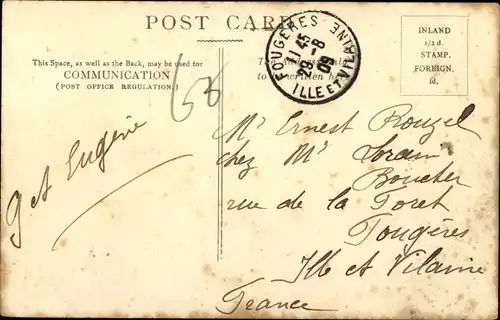 POST CARD
This Space, as well as the Back, may be used for
COMMUNICATION
(POST OFFICE REGULATION.)
INLAND
1/2 d.
STAMP.
FOREIGN.
1d.
FOUGERES
11 45
28 - 8
09
ILLE ET VILAINE
63
get Eugénie
Mr Ernest Rouzel
chez Mr
Boucher
rue de la Foret
Fougères
Ille et Vilaine
France